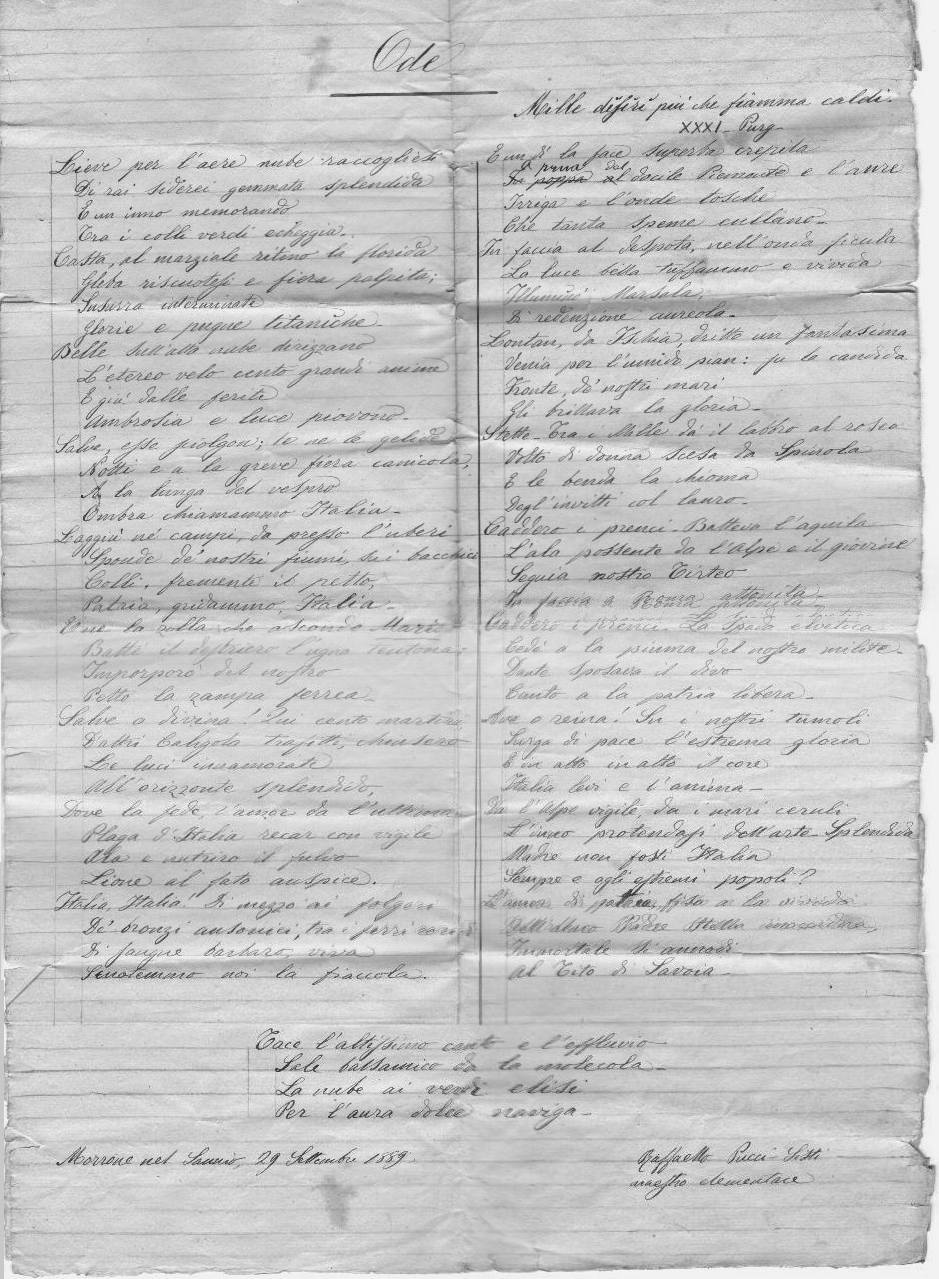 Ode
Mille disiri più che fiamma caldi.
XXXI - Purg -
Lieve per l'aere nube raccogliesi
Di rai siderei gemmata splendida
E un inno memorando
Tra i colli verdi echeggia.
Casta, al marziale retino la florida
Gleba riscuotesi e fiera palpita;
Susurra
Glorie e pugne titaniche -
Belle sull'alta nube dirizzano
L'etereo velo cento grandi anime
E già dalle ferite
Ambrosia e luce piovono -
Salve, esse te ne le gelide
Notti e a la greve fiera canicola,
A la lunga del vespro
Ombra chiamammo Italia -
Laggiù ne' campi, da presso l'uberi
Sponde de' nostri fiumi, su i bacchici
Colli, fremente il petto,
Patria, gridammo, Italia -
E ne la zolla che asconde Mario
Battè il destriero l'ugna teutona;
Imporporò del nostro
Petto la zampa ferrea -
Salve o divina! Qui cento martiri,
D'altri Caligola trafitti, chiusero
Le luci innamorate
All'orizzonte splendido,
Dove la fede, l'amor da l'ultima
Plaga d'Italia recar con vigile
e nutriro il fulvo
Lione al fato auspice.
Italia, Italia! Di mezzo ai folgori
De' bronzi ausonici, tra i ferri
Di sangue barbaro, viva
noi la fiaccola.
E un dì la face superba crepita
a prua del
In poppa al docile Piemonte e l'aure
Irriga e l'onde tosche
Che tanta speme cullano -
In faccia al despota, nell'onda sicula
La luce bella tuffammo e vivida
Illuminò Marsala,
Di redenzione aureola -
Lontan, da Ischia, dritto un fantasima
Venia per l'umido pian: su la candida
Fronte, de' nostri mari
Gli brillava la gloria -
Stette - Tra i Mille dà il labaro al roseo
Volto di donna scesa da Spinola
E le benda la chioma
Degl'invitti col lauro -
Caddero i prenci - Batteva l'aquila
L'ala possente da l'Alpe e il giovine
Seguia nostro Tirteo
In faccia a Roma attonita -
Caddero i prenci. La spada elvetica
Cedè a la piuma del nostro milite -
Dante sposava il divo
Canto a la patria libera -
Ave o reina! Su i nostri tumoli
Surga di pace l'estrema gloria
E in alto in alto il core
Italia levi e l'anima -
Da l'Alpe vigile, da i mari ceruli
L'inno protendasi dell'arte - Splendida
Madre non fosti Italia
Sempre e agli estremi popoli?
L'amor di patria, fisa a la vivida
Padre Stella
Immortale si annodi
Al Tito di Savoia -
Tace l'altissimo canto e l'effluvio
Sale balsamico da la molecola -
La nube ai verdi elisi
Per l'aura dolce naviga -
Morrone nel Sannio, 29 Settembre 1889.
Raffaello Pucci Sisti
maestro elementare